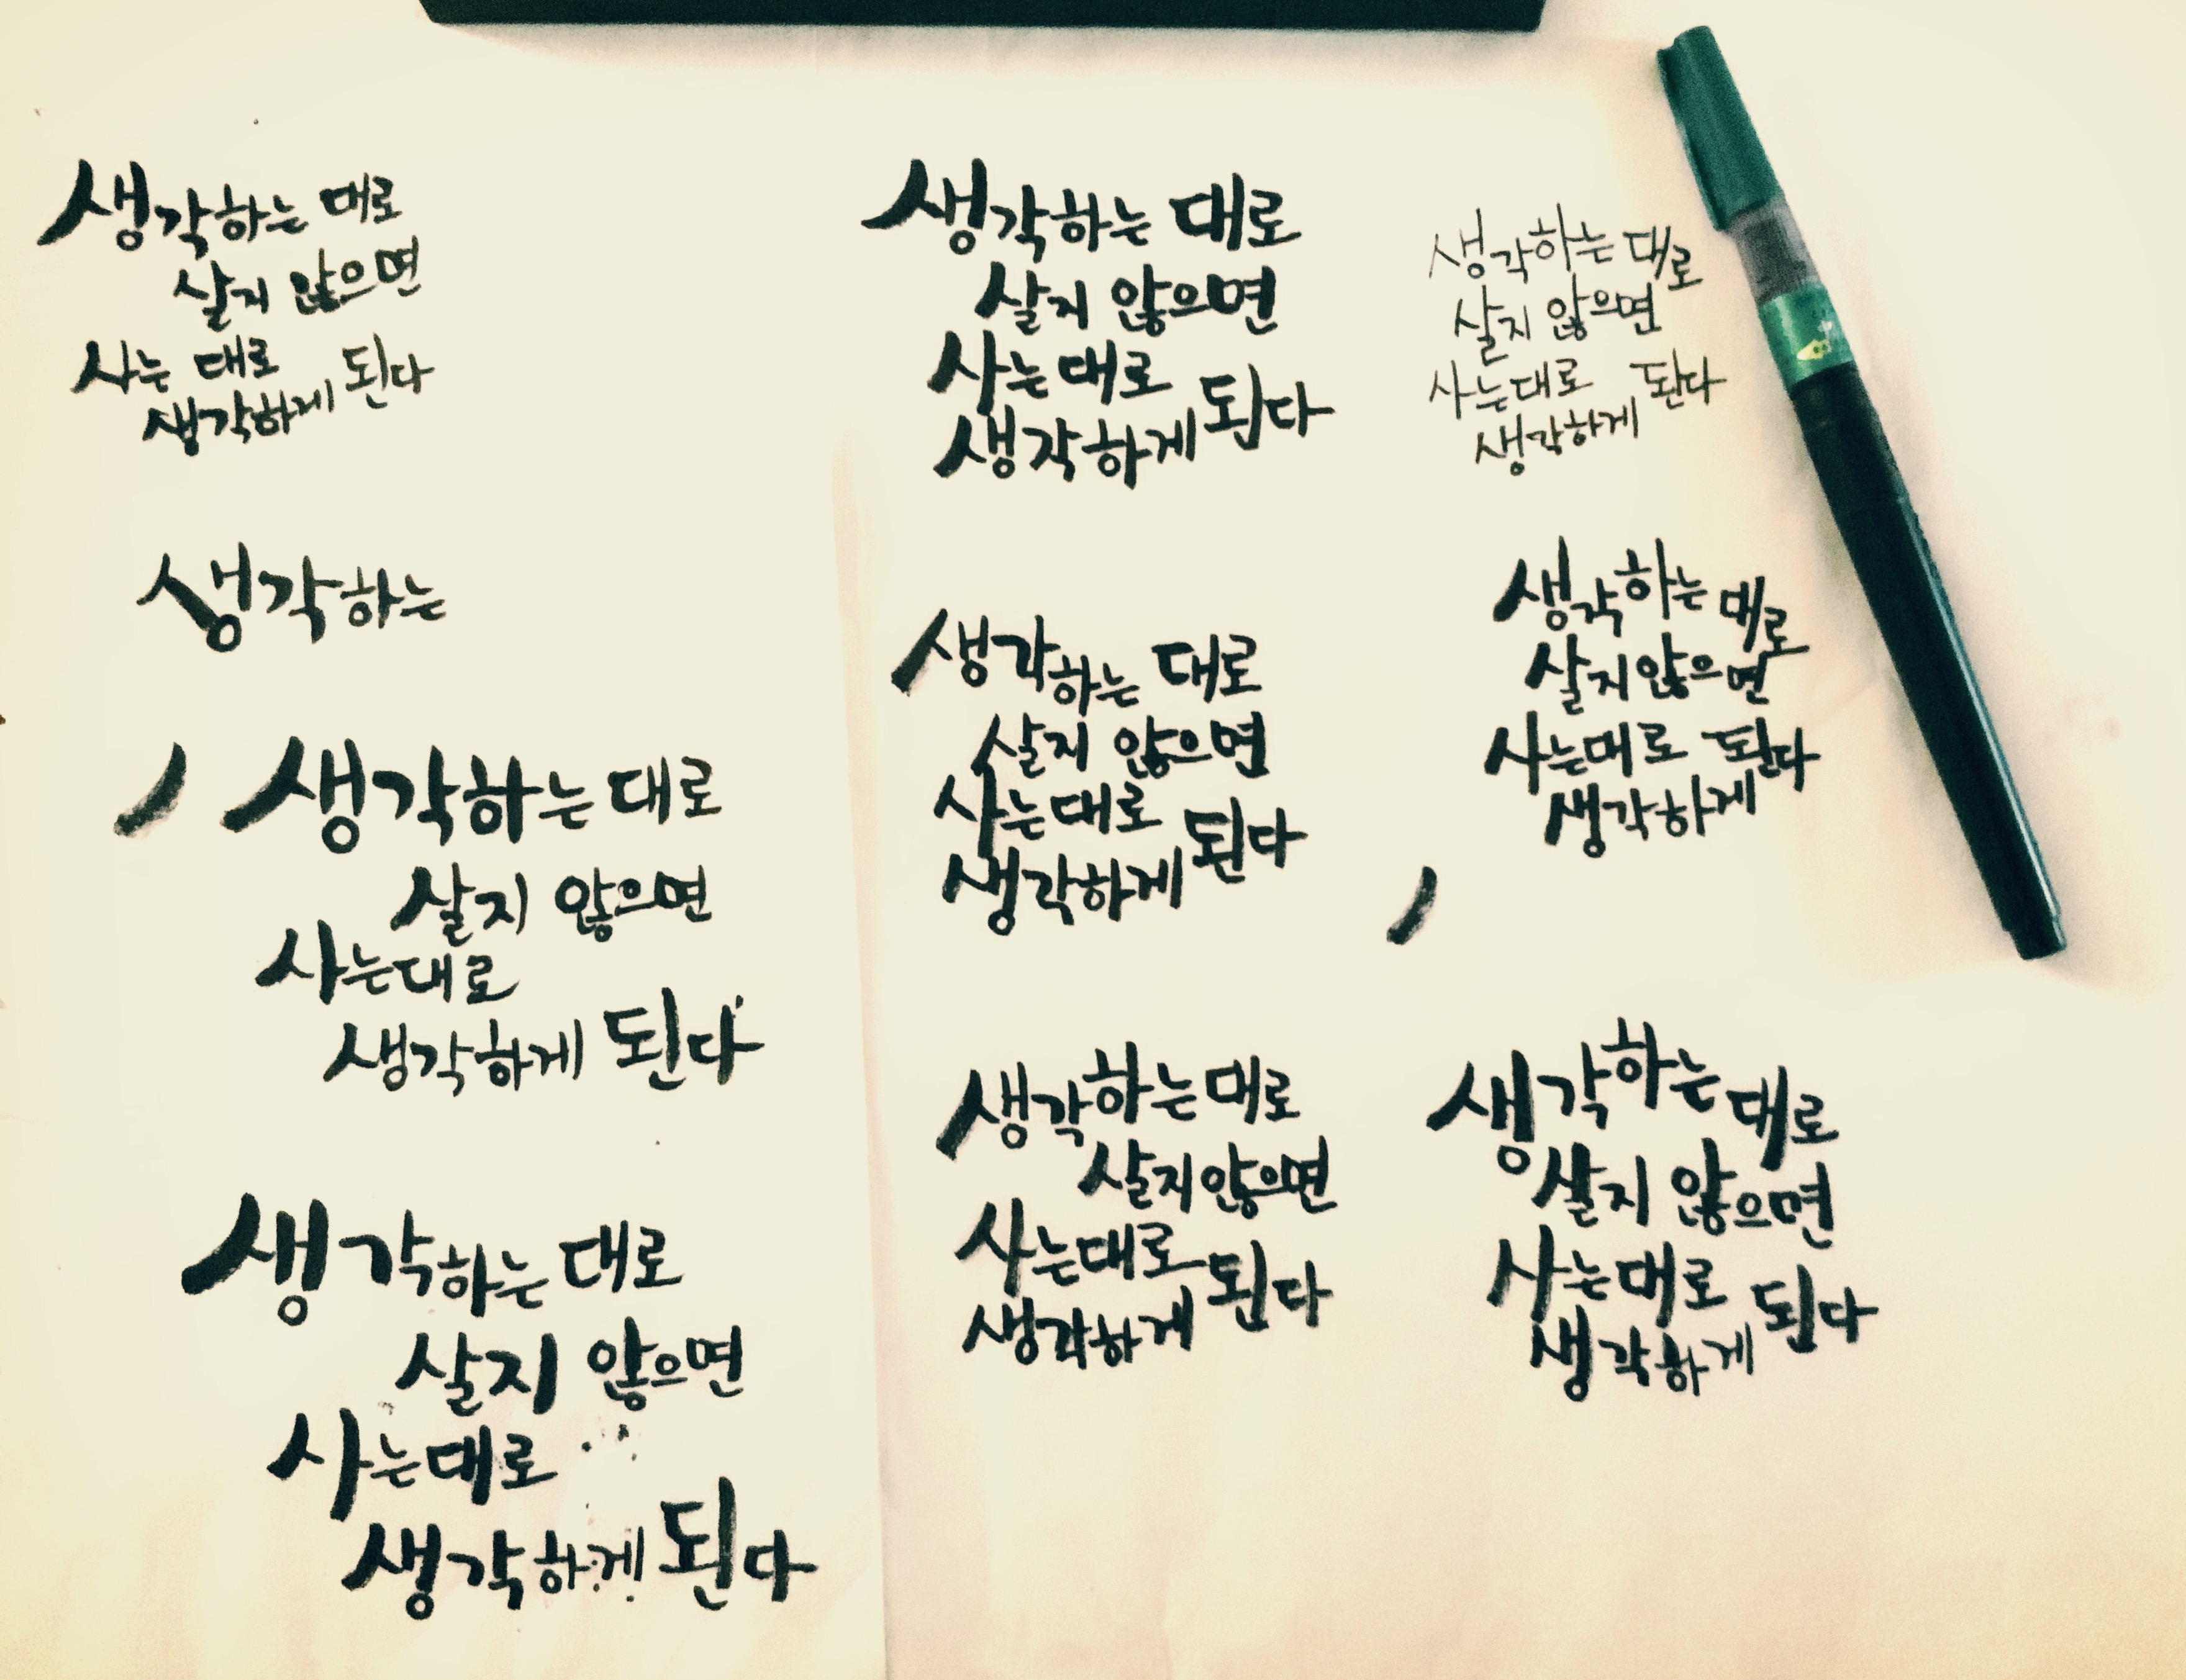 생각하는 대로
살지 않으면
사는 대로
생각하게 된다
생각하는
생각하는 대로
살지 않으면
사는대로
생각하게 된다
생각하는 대로
살지 않으면
사는대로
생각하게 된다
생각하는 대로
살지 않으면
사는대로
생각하게 된다
생각하는 대로
살지 않으면
사는대로
생각하게 된다
생각하는대로
살지않으면
사는대로
생각하게 된다
생각하는 대로
살지 않으면
사는대로
생각하게 된다
생각하는 대로
살지않으면
사는대로
생각하게 된다
생각하는 대로
살지 않으면
사는대로
생각하게 된다